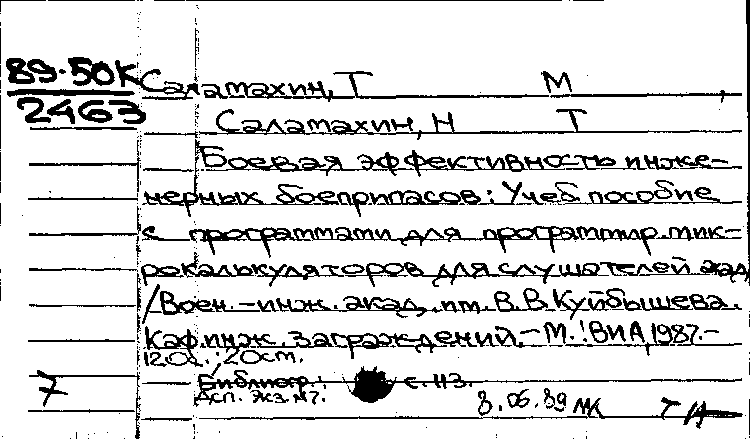 89-50К
2463
Саламахин, Т М
Саламахин, Н Т
Боевая эффективность инже-
нерных боеприпасов: Учеб пособие
с программами для программир. мик-
рокалькуляторов для слушателей акад
/Воен.-инж. акад. им. В. В. Куйбышева.
Каф. инж. заграждений.- М.: ВИА, 1987.-
20см.
Библиогр.: с. 113.
экз. №7.
7
8.06.89